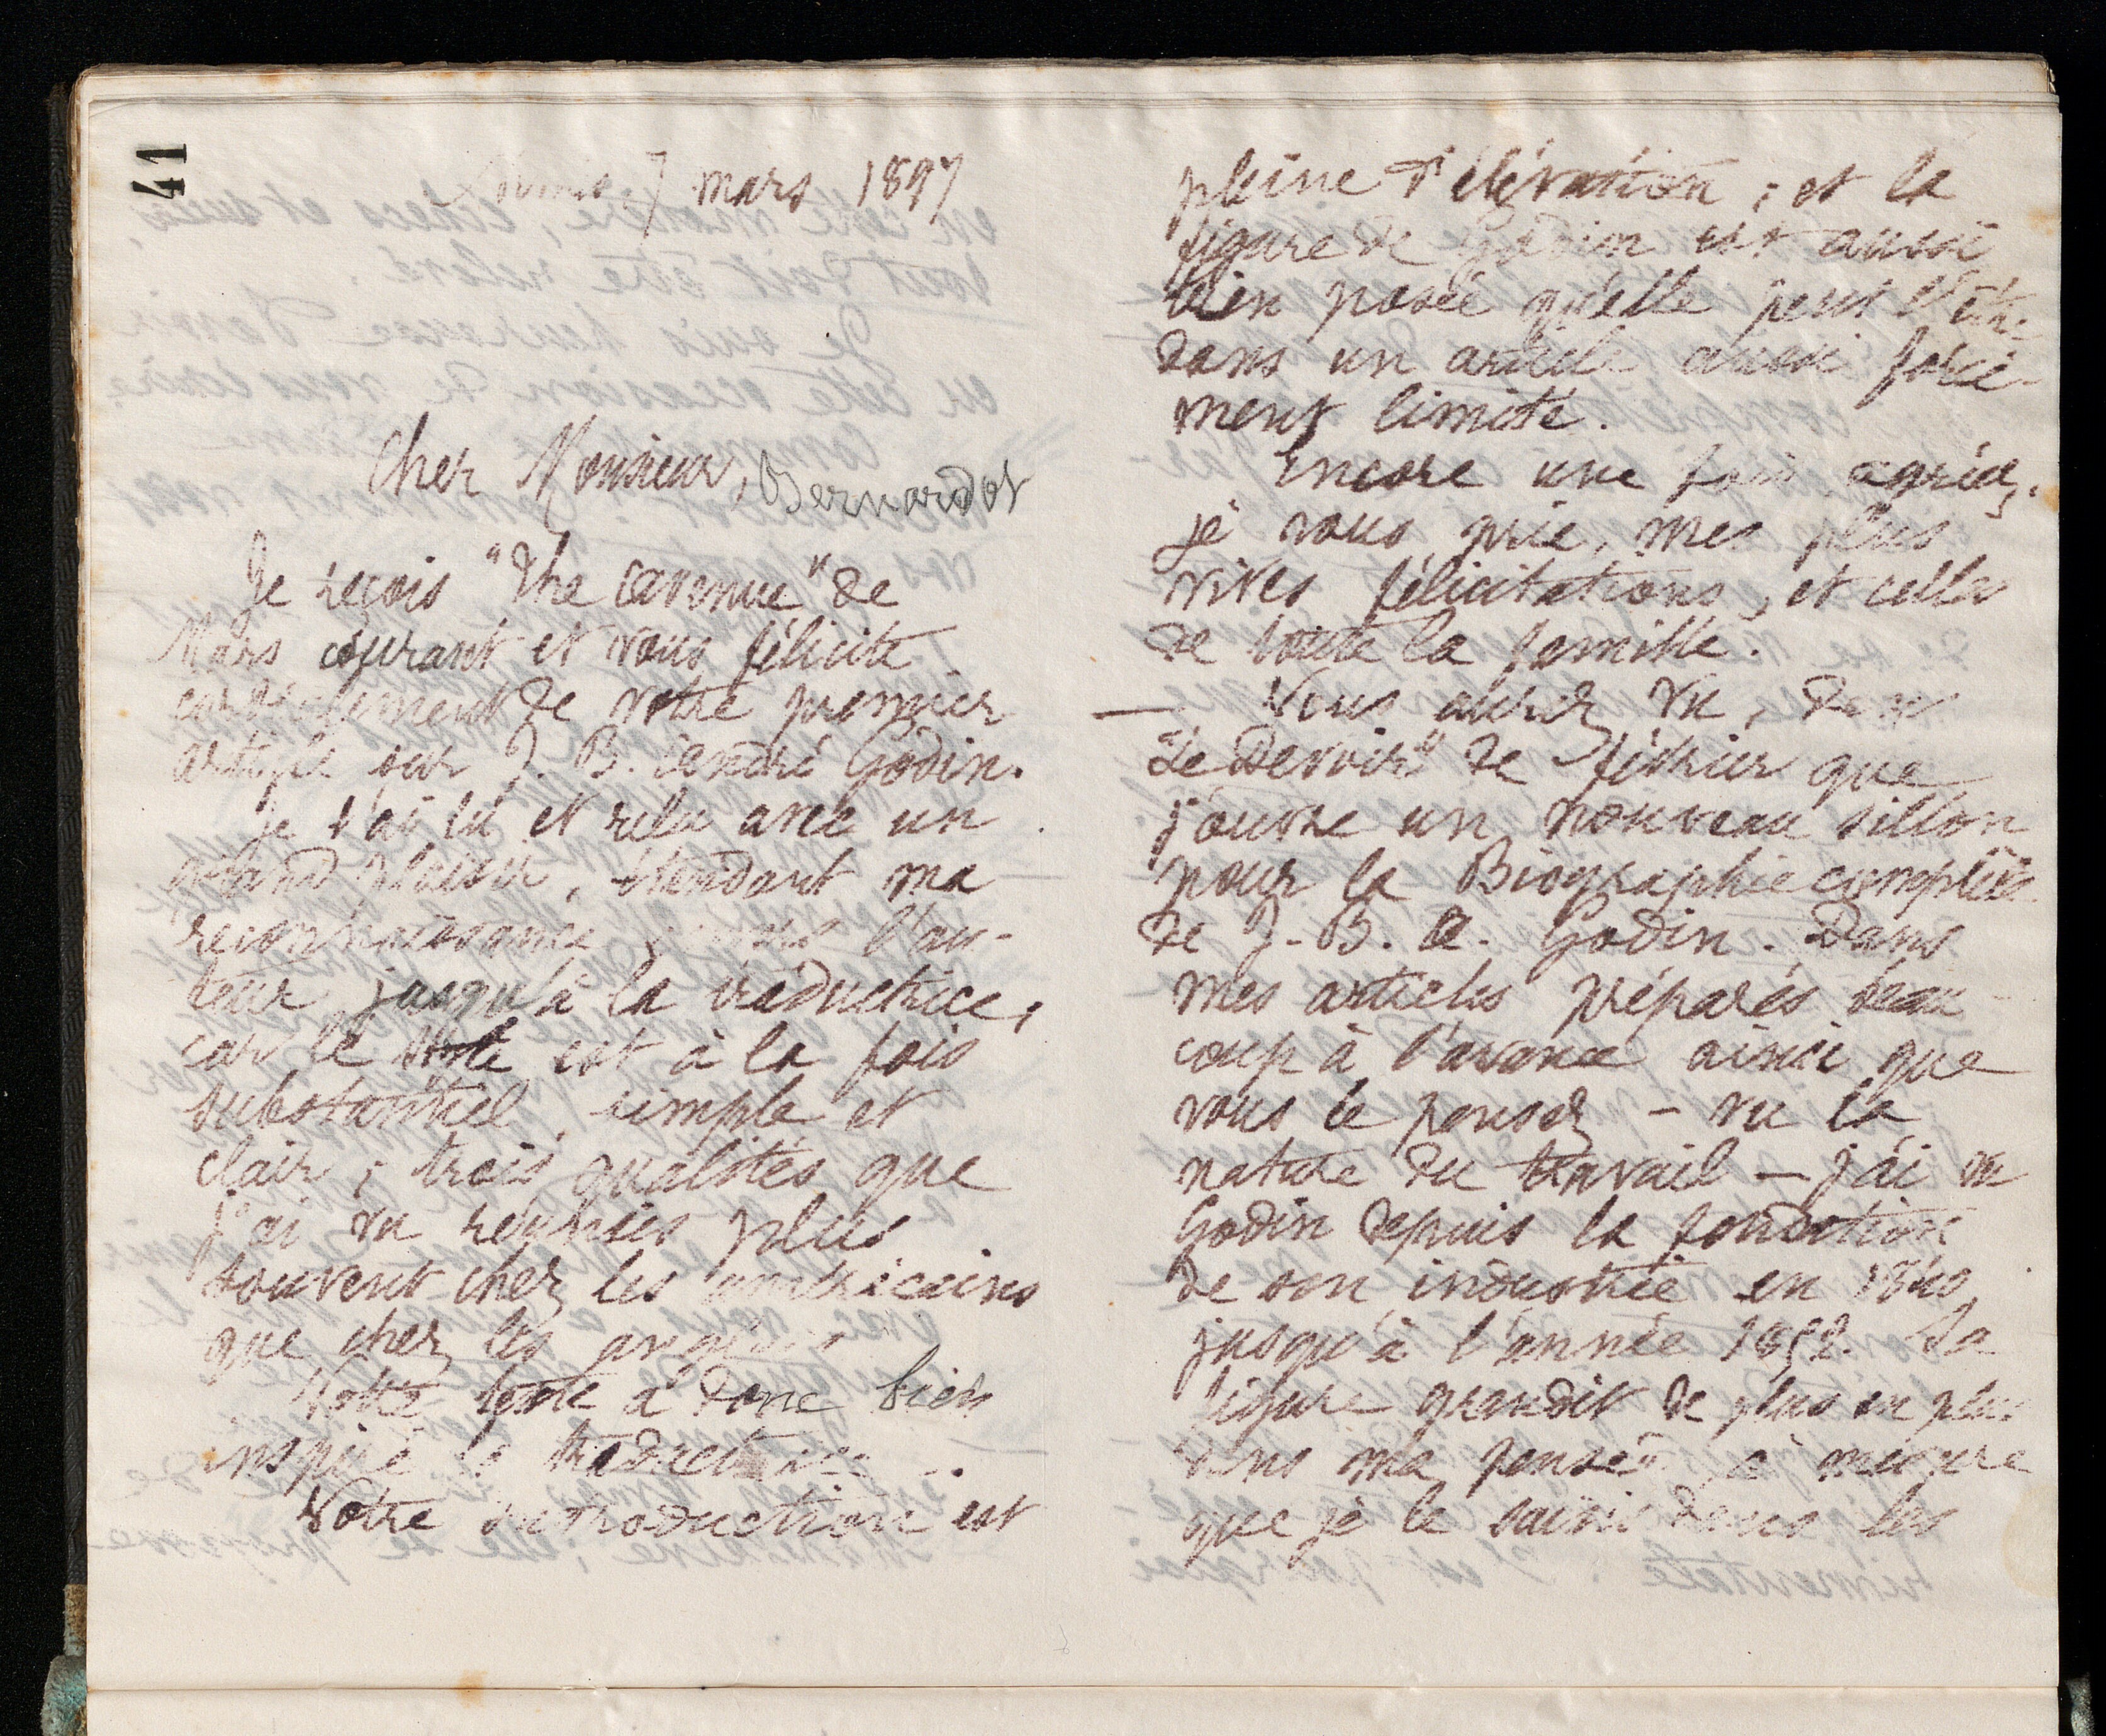 41
Nimes, 7 mars 1897
Cher Monsieur, Bernardot
Je reçois "The avenue" de
Mars courant et vous félicite
cordialement de votre premier
article sur J. B. André Godin.
Je l'ai lu et relu avec un
grand plaisir, étendant ma
reconnaissance l'au-
teur jusqu'à la traductrice,
car le style est à la fois
substantiel, simple et
clair ; trois qualités que
j'ai vu réunies plus
souvent chez les américains
que chez les anglais
Votre texte a donc bien
inspiré la traductrice.
Votre introduction est
pleine d'élévation ; et la
figure de Godin est aussi
bien posée qu'elle peut l'être
dans un article aussi forcé-
ment limité.
Encore une fois agréez,
je vous prie, mes plus
vives félicitations, et celles
de toute la famille.
— Vous aurez vu, dans
"Le Devoir" de février que
j'ouvre un nouveau sillon
pour la Biographie complète
de J. B. A. Godin. Dans
mes articles préparés beau-
coup à l'avance ainsi que
vous le pensez – vu la
nature du travail – j'ai vu
Godin depuis la fondation
de son industrie en
jusqu'à l'année 1852. Sa
figure grandit de plus en plus
dans ma pensée à mesure
que je le saisis dans les